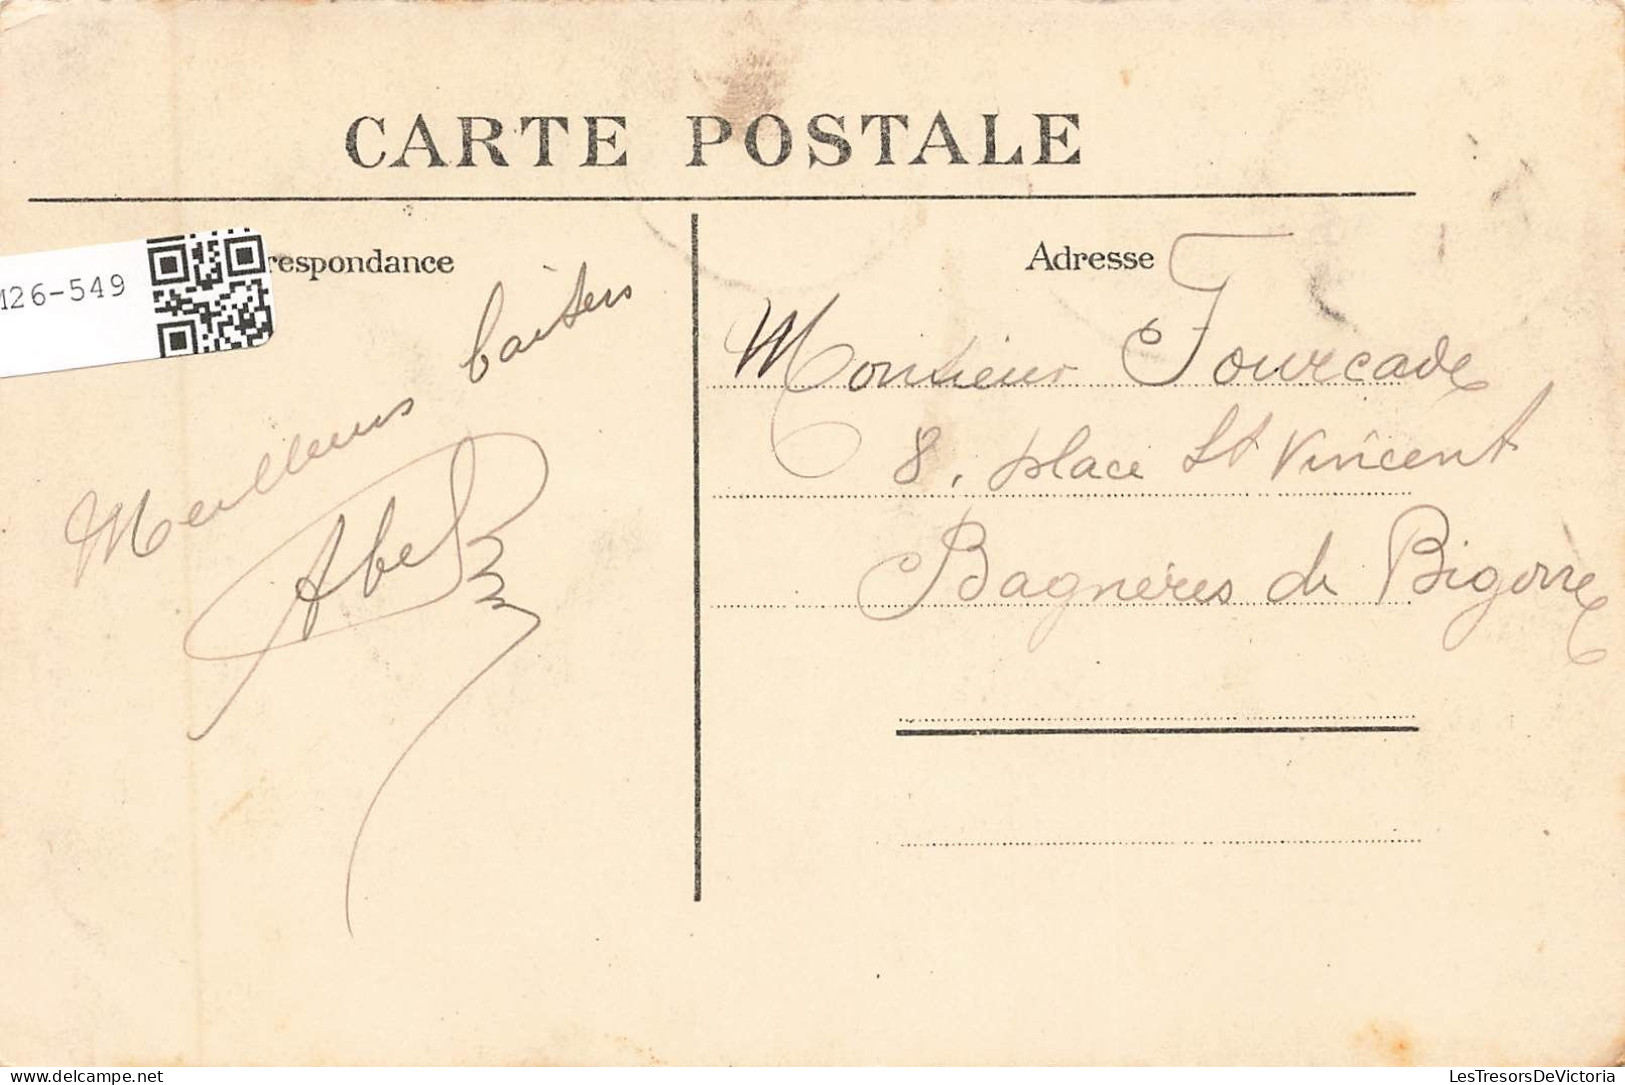 CARTE POSTALE
M26-549
respondance
Adresse
Meilleurs baisers
Abel
Monsieur Fourcade
8, place St Vincent
Bagnères de Bigorre
LesTresorsDeVictoria